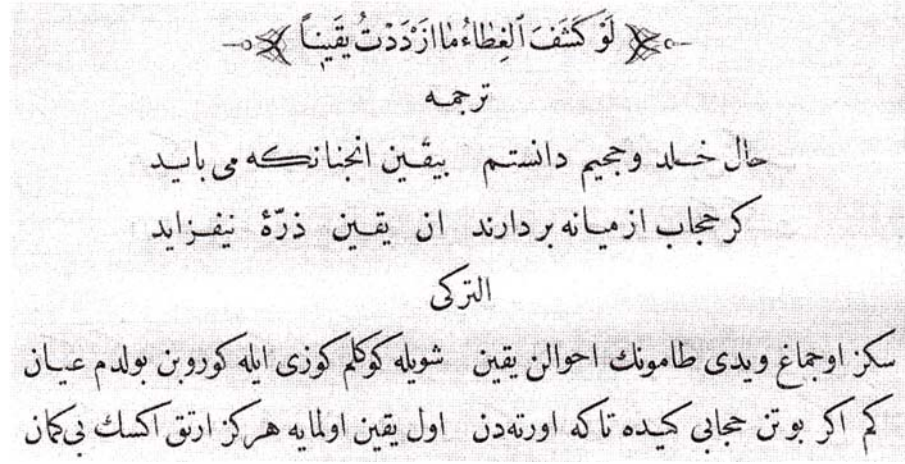 لَوْ كَشَفَ ٱلْغِطَاءُ مَا ازْدَدْتُ يَقِينًا
ترجمه
حال خلد وجحيم دانستم بيقين انجنانكه مى بايد
كر حجاب از ميانه بردارند ان يقين ذرّۀ نيفزايد
التركى
سكز اوجماغ ويدى طامونك احوالن يقين شويله كوكلم كوزى ايله كوروبن بولدم عيان
كم اكر بو تن حجابى كيده تاكه اورته‌دن اول يقين اولمايه هركز ارتق اكسك بى‌كمان